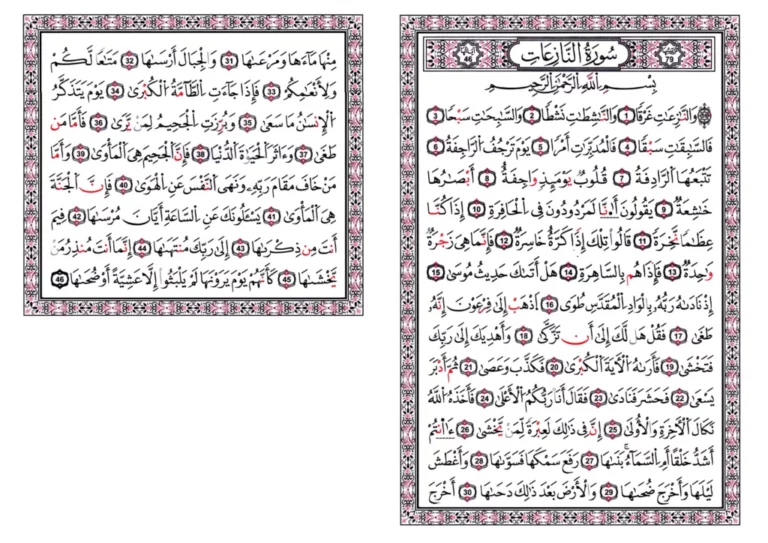 79 سُورَةُ النَّازِعَاتِ 46
بِسْمِ اللَّهِ الرَّحْمَٰنِ الرَّحِيمِ
وَالنَّٰزِعَٰتِ غَرْقًا 1 وَالنَّٰشِطَٰتِ نَشْطًا 2 وَالسَّٰبِحَٰتِ سَبْحًا 3
فَالسَّٰبِقَٰتِ سَبْقًا 4 فَالْمُدَبِّرَٰتِ أَمْرًا 5 يَوْمَ تَرْجُفُ الرَّاجِفَةُ 6
تَتْبَعُهَا الرَّادِفَةُ 7 قُلُوبٌ يَوْمَئِذٍ وَاجِفَةٌ 8 أَبْصَٰرُهَا
خَٰشِعَةٌ 9 يَقُولُونَ أَءِنَّا لَمَرْدُودُونَ فِي الْحَافِرَةِ 10 إِذَا كُنَّا
عِظَٰمًا نَّخِرَةً 11 قَالُوا تِلْكَ إِذًا كَرَّةٌ خَاسِرَةٌ 12 فَإِنَّمَا هِيَ زَجْرَةٌ
وَٰحِدَةٌ 13 فَإِذَا هُم بِالسَّاهِرَةِ 14 هَلْ أَتَىٰكَ حَدِيثُ مُوسَىٰ 15
إِذْ نَادَىٰهُ رَبُّهُۥ بِالْوَادِ الْمُقَدَّسِ طُوًى 16 اذْهَبْ إِلَىٰ فِرْعَوْنَ إِنَّهُۥ
طَغَىٰ 17 فَقُلْ هَل لَّكَ إِلَىٰ أَن تَزَكَّىٰ 18 وَأَهْدِيَكَ إِلَىٰ رَبِّكَ
فَتَخْشَىٰ 19 فَأَرَىٰهُ الْآيَةَ الْكُبْرَىٰ 20 فَكَذَّبَ وَعَصَىٰ 21 ثُمَّ أَدْبَرَ
يَسْعَىٰ 22 فَحَشَرَ فَنَادَىٰ 23 فَقَالَ أَنَا رَبُّكُمُ الْأَعْلَىٰ 24 فَأَخَذَهُ اللَّهُ
نَكَالَ الْآخِرَةِ وَالْأُولَىٰ 25 إِنَّ فِي ذَٰلِكَ لَعِبْرَةً لِّمَن يَخْشَىٰ 26 ءَأَنتُمْ
أَشَدُّ خَلْقًا أَمِ السَّمَاءُ ۚ بَنَىٰهَا 27 رَفَعَ سَمْكَهَا فَسَوَّىٰهَا 28 وَأَغْطَشَ
لَيْلَهَا وَأَخْرَجَ ضُحَىٰهَا 29 وَالْأَرْضَ بَعْدَ ذَٰلِكَ دَحَىٰهَا 30 أَخْرَجَ
مِنْهَا مَاءَهَا وَمَرْعَىٰهَا 31 وَالْجِبَالَ أَرْسَىٰهَا 32 مَتَٰعًا لَّكُمْ
وَلِأَنْعَٰمِكُمْ 33 فَإِذَا جَاءَتِ الطَّامَّةُ الْكُبْرَىٰ 34 يَوْمَ يَتَذَكَّرُ
الْإِنسَٰنُ مَا سَعَىٰ 35 وَبُرِّزَتِ الْجَحِيمُ لِمَن يَرَىٰ 36 فَأَمَّا مَن
طَغَىٰ 37 وَءَاثَرَ الْحَيَوٰةَ الدُّنْيَا 38 فَإِنَّ الْجَحِيمَ هِيَ الْمَأْوَىٰ 39 وَأَمَّا
مَنْ خَافَ مَقَامَ رَبِّهِۦ وَنَهَى النَّفْسَ عَنِ الْهَوَىٰ 40 فَإِنَّ الْجَنَّةَ
هِيَ الْمَأْوَىٰ 41 يَسْـَٔلُونَكَ عَنِ السَّاعَةِ أَيَّانَ مُرْسَىٰهَا 42 فِيمَ
أَنتَ مِن ذِكْرَىٰهَا 43 إِلَىٰ رَبِّكَ مُنتَهَىٰهَا 44 إِنَّمَا أَنتَ مُنذِرُ مَن
يَخْشَىٰهَا 45 كَأَنَّهُمْ يَوْمَ يَرَوْنَهَا لَمْ يَلْبَثُوا إِلَّا عَشِيَّةً أَوْ ضُحَىٰهَا 46